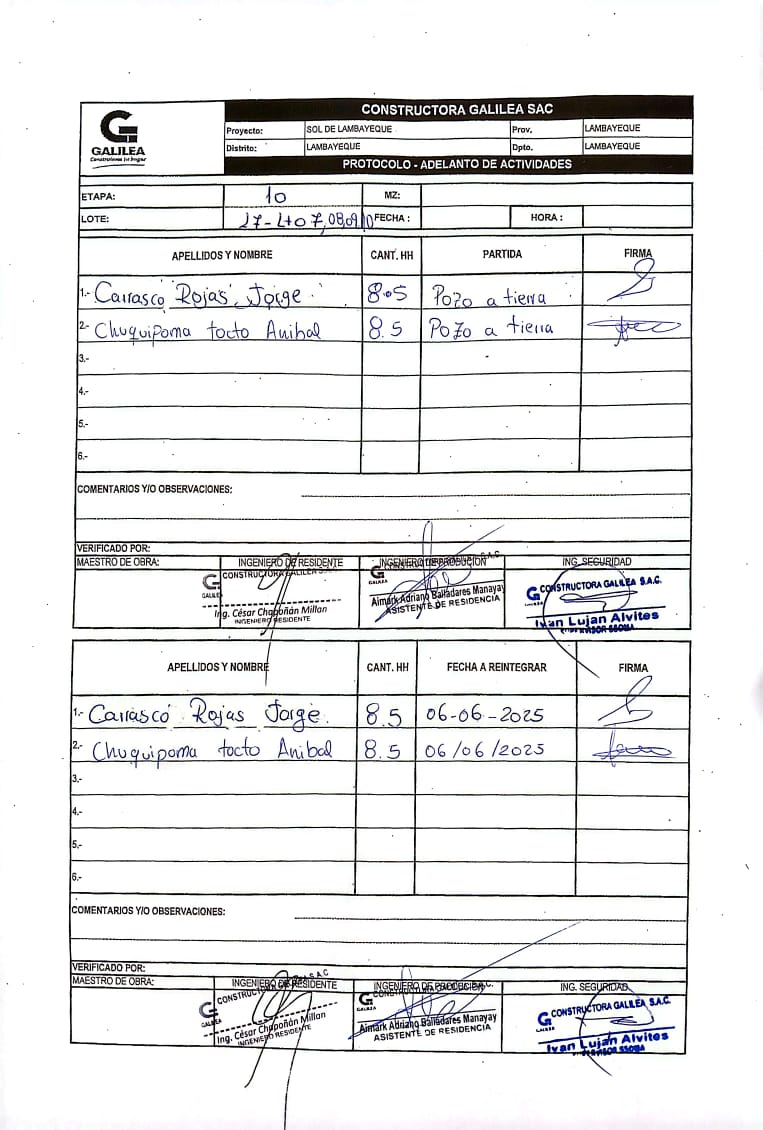 CONSTRUCTORA GALILEA SAC
GALILEA
Construimos tu hogar
Proyecto: SOL DE LAMBAYEQUE Prov. LAMBAYEQUE
Distrito: LAMBAYEQUE Dpto. LAMBAYEQUE
PROTOCOLO - ADELANTO DE ACTIVIDADES
ETAPA: 10 MZ:
LOTE: 27- L+07,08,09,10 FECHA : HORA :
APELLIDOS Y NOMBRE CANT. HH PARTIDA FIRMA
1.- Carrasco Rojas Jorge 8.5 Pozo a tierra
2.- Chuquipoma tocto Anibal 8.5 Pozo a tierra
3.-
4.-
5.-
6.-
COMENTARIOS Y/O OBSERVACIONES:
VERIFICADO POR:
MAESTRO DE OBRA: INGENIERO DE RESIDENTE INGENIERO DE PRODUCION ING. SEGURIDAD
CONSTRUCTORA GALILEA S.A.C.
GALILEA
Ing. César Chapoñán Millan
INGENIERO RESIDENTE
GALILEA
Aimark Adriano Balladares Manayay
ASISTENTE DE RESIDENCIA
CONSTRUCTORA GALILEA S.A.C.
Ivan Lujan Alvites
SUPERVISOR SSOMA
APELLIDOS Y NOMBRE CANT. HH FECHA A REINTEGRAR FIRMA
1.- Carrasco Rojas Jorge 8.5 06-06-2025
2.- Chuquipoma tocto Anibal 8.5 06/06/2025
3.-
4.-
5.-
6.-
COMENTARIOS Y/O OBSERVACIONES:
VERIFICADO POR:
MAESTRO DE OBRA: INGENIERO DE RESIDENTE INGENIERO DE PRODUCION ING. SEGURIDAD
GALILEA
Ing. César Chapoñán Millan
INGENIERO RESIDENTE
GALILEA
Aimark Adriano Balladares Manayay
ASISTENTE DE RESIDENCIA
CONSTRUCTORA GALILEA S.A.C.
Ivan Lujan Alvites
SUPERVISOR SSOMA